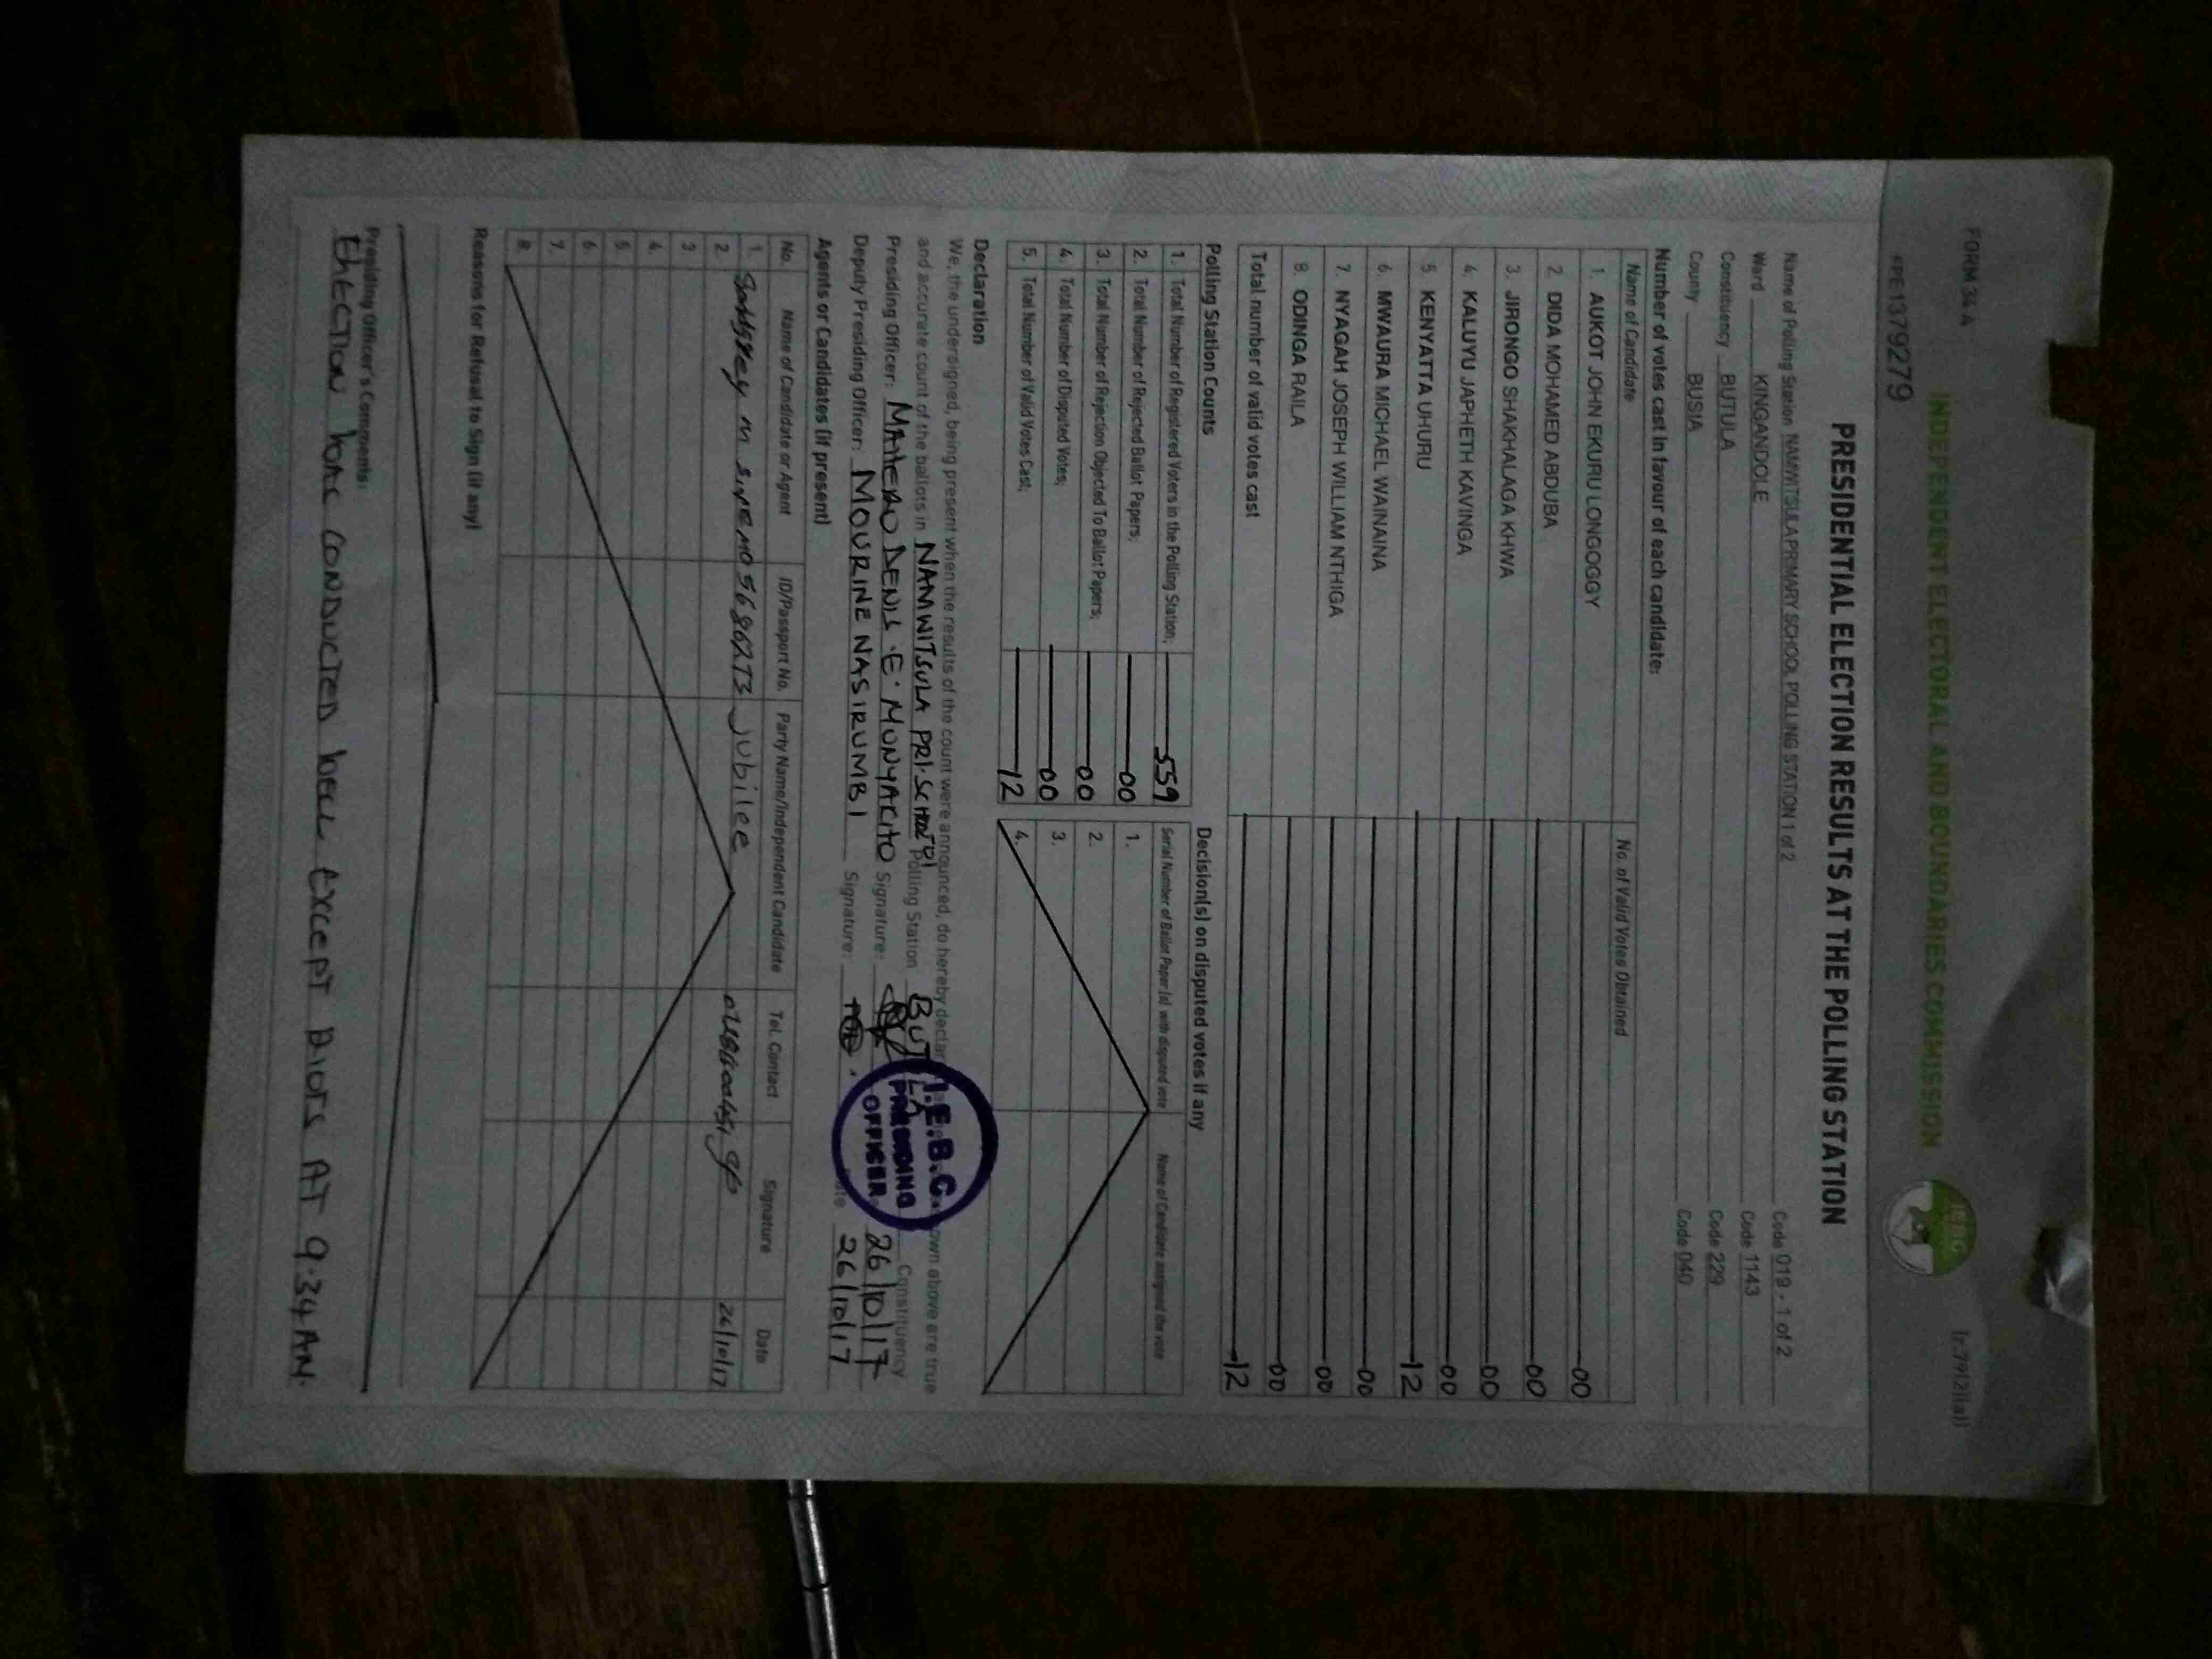 FORM 34 A
FPE1379279
INDEPENDENT ELECTORAL AND BOUNDARIES COMMISSION
IEBC
PRESIDENTIAL ELECTION RESULTS AT THE POLLING STATION
Name of Polling Station NAMWITSULA PRIMARY SCHOOL POLLING STATION 1 of 2 Code 019 - 1 of 2
Ward KINGANDOLE Code 1143
Constituency BUTULA Code 229
County BUSIA Code 040
Number of votes cast in favour of each candidate:
Name of Candidate No. of Valid Votes Obtained
1. AUKOT JOHN EKURU LONGOGGY 00
2. DIDA MOHAMED ABDUBA 00
3. JIRONGO SHAKHALAGA KHWA 00
4. KALUYU JAPHETH KAVINGA 00
5 KENYATTA UHURU 12
6. MWAURA MICHAEL WAINAINA 00
7. NYAGAH JOSEPH WILLIAM NTHIGA 00
8. ODINGA RAILA 00
Total number of valid votes cast 12
Polling Station Counts
1. Total Number of Registered Voters in the Polling Station; 559
2. Total Number of Rejected Ballot Papers; 00
3. Total Number of Rejection Objected To Ballot Papers; 00
4. Total Number of Disputed Votes; 00
5. Total Number of Valid Votes Cast; 12
Decision(s) on disputed votes if any
Serial Number of Ballot Paper (s) with disputed vote Name of Candidate assigned the vote
1.
2.
3.
4.
Declaration
We, the undersigned, being present when the results of the count were announced, do hereby declare own above are true
and accurate count of the ballots in NAMWITSULA PRI. SCHOOL Polling Station BUTULA Constituency
Presiding Officer: MATERO DENIS .E. MUNYAKITO Signature: 26/10/17
Deputy Presiding Officer: MOURINE NASIRUMBI Signature: 26/10/17
I.E.B.C.
PRESIDING
OFFICER
Agents or Candidates (if present)
No. Name of Candidate or Agent ID/Passport No. Party Name/Independent Candidate Tel. Contact Signature Date
1. Jubilee 26/10/17
2.
3
4.
5
6.
7.
8.
Reasons for Refusal to Sign (if any)
Presiding Officer's Comments:
ELECTION WAS CONDUCTED WELL EXCEPT RIOTS AT 9.34 AM.